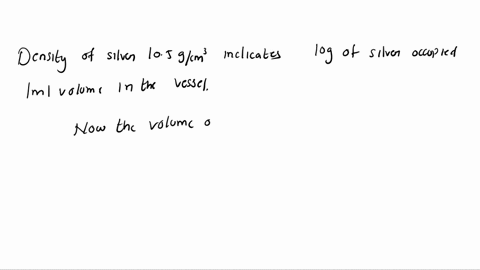 Density of silver 10.5 g/cm³ indicates log of silver occupied
1ml volume in the vessel.
Now the volume o